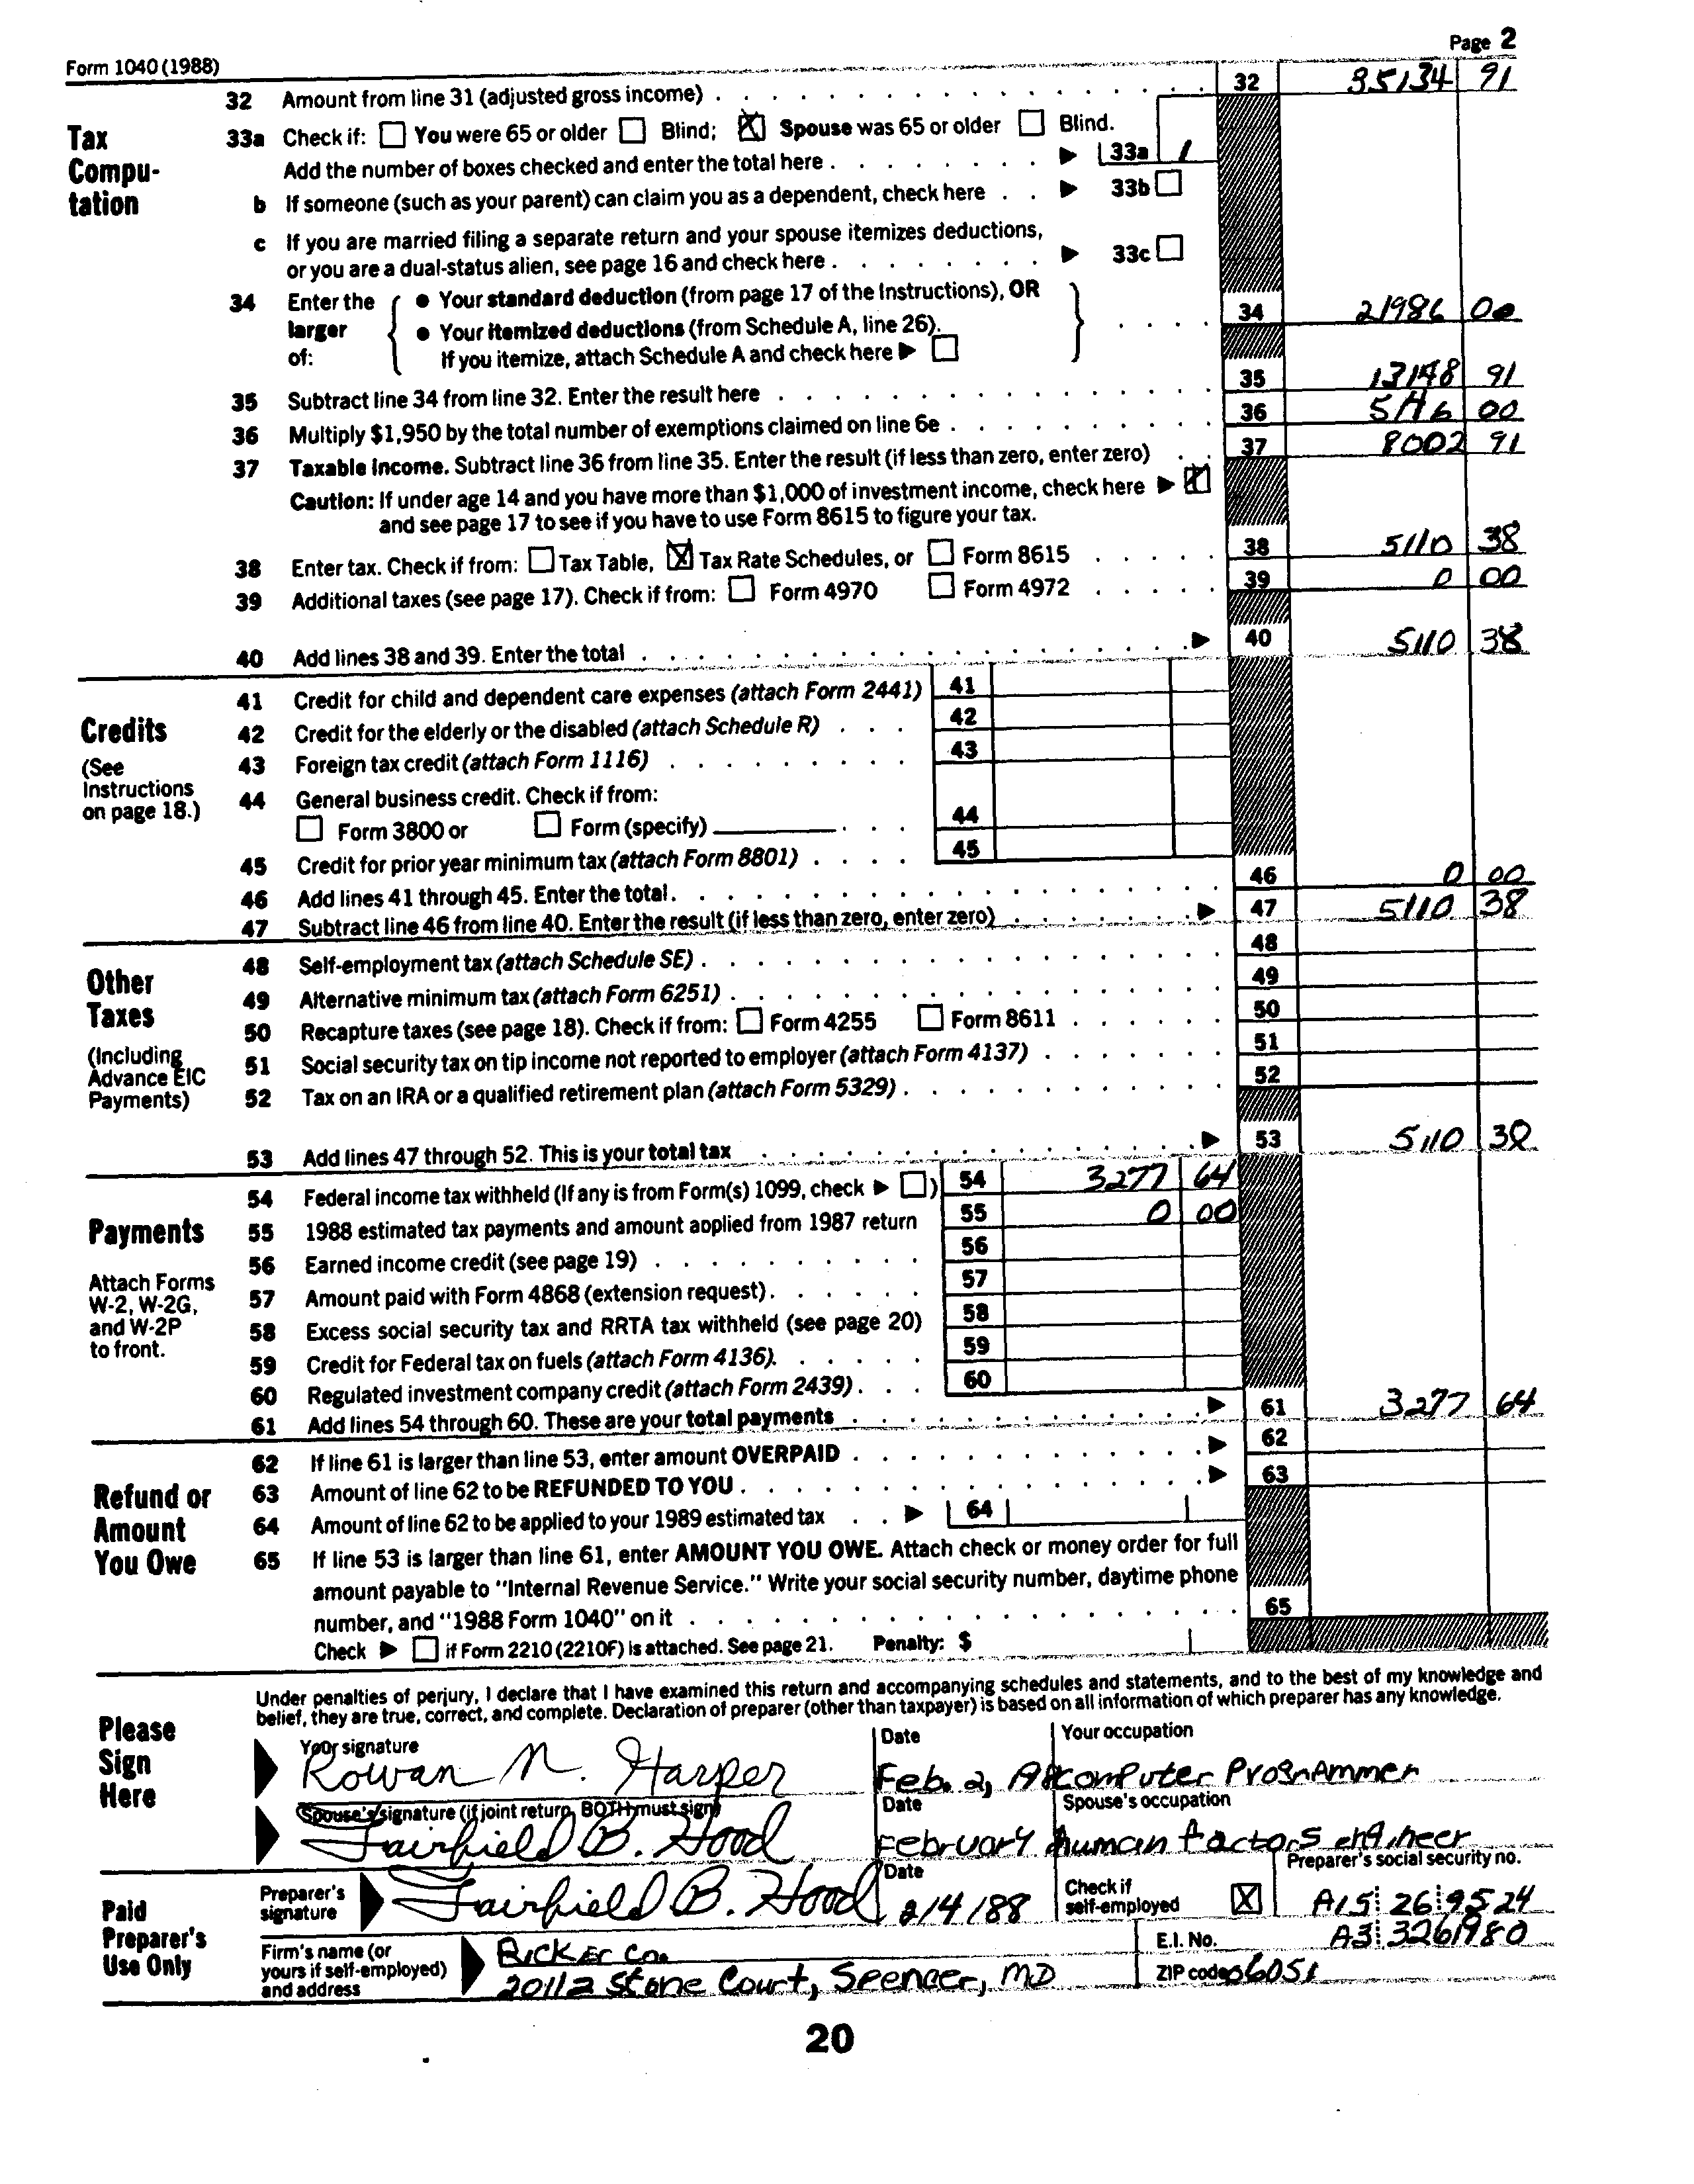 Form 1040 (1988) Page 2
32 Amount from line 31 (adjusted gross income) 32 35134 91
Tax Compu- tation
33a Check if: You were 65 or older Blind; X Spouse was 65 or older Blind.
Add the number of boxes checked and enter the total here 33a 1
b If someone (such as your parent) can claim you as a dependent, check here 33b
c If you are married filing a separate return and your spouse itemizes deductions,
or you are a dual-status alien, see page 16 and check here 33c
34 Enter the larger of:
• Your standard deduction (from page 17 of the Instructions), OR
• Your itemized deductions (from Schedule A, line 26).
If you itemize, attach Schedule A and check here
34 21986 00
35 Subtract line 34 from line 32. Enter the result here 35 13148 91
36 Multiply $1,950 by the total number of exemptions claimed on line 6e 36 00
37 Taxable income. Subtract line 36 from line 35. Enter the result (if less than zero, enter zero) 37 8002 91
Caution: If under age 14 and you have more than $1,000 of investment income, check here
and see page 17 to see if you have to use Form 8615 to figure your tax.
38 Enter tax. Check if from: Tax Table, X Tax Rate Schedules, or Form 8615 38 5110 38
39 Additional taxes (see page 17). Check if from: Form 4970 Form 4972 39 0 00
40 Add lines 38 and 39. Enter the total 40 5110 38
Credits
(See Instructions on page 18.)
41 Credit for child and dependent care expenses (attach Form 2441) 41
42 Credit for the elderly or the disabled (attach Schedule R) 42
43 Foreign tax credit (attach Form 1116) 43
44 General business credit. Check if from:
Form 3800 or Form (specify) 44
45 Credit for prior year minimum tax (attach Form 8801) 45
46 Add lines 41 through 45. Enter the total 46 0 00
47 Subtract line 46 from line 40. Enter the result (if less than zero, enter zero) 47 5110 38
Other Taxes
(Including Advance EIC Payments)
48 Self-employment tax (attach Schedule SE) 48
49 Alternative minimum tax (attach Form 6251) 49
50 Recapture taxes (see page 18). Check if from: Form 4255 Form 8611 50
51 Social security tax on tip income not reported to employer (attach Form 4137) 51
52 Tax on an IRA or a qualified retirement plan (attach Form 5329) 52
53 Add lines 47 through 52. This is your total tax 53 5110 38
Payments
Attach Forms W-2, W-2G, and W-2P to front.
54 Federal income tax withheld (If any is from Form(s) 1099, check ) 54 3277 64
55 1988 estimated tax payments and amount applied from 1987 return 55 0 00
56 Earned income credit (see page 19) 56
57 Amount paid with Form 4868 (extension request) 57
58 Excess social security tax and RRTA tax withheld (see page 20) 58
59 Credit for Federal tax on fuels (attach Form 4136) 59
60 Regulated investment company credit (attach Form 2439) 60
61 Add lines 54 through 60. These are your total payments 61 3277 64
Refund or Amount You Owe
62 If line 61 is larger than line 53, enter amount OVERPAID 62
63 Amount of line 62 to be REFUNDED TO YOU 63
64 Amount of line 62 to be applied to your 1989 estimated tax 64
65 If line 53 is larger than line 61, enter AMOUNT YOU OWE. Attach check or money order for full
amount payable to "Internal Revenue Service." Write your social security number, daytime phone
number, and "1988 Form 1040" on it 65
Check if Form 2210 (2210F) is attached. See page 21. Penalty: $
Please Sign Here
Under penalties of perjury, I declare that I have examined this return and accompanying schedules and statements, and to the best of my knowledge and
belief, they are true, correct, and complete. Declaration of preparer (other than taxpayer) is based on all information of which preparer has any knowledge.
Your signature Date Your occupation
Rowan N. Harper Feb. 2, Computer Programmer
Spouse's signature (if joint return, BOTH must sign) Date Spouse's occupation
Fairfield B. Hood February human factors engineer
Paid Preparer's Use Only
Preparer's signature Fairfield B. Hood Date 2/4/88 Check if self-employed X Preparer's social security no. A15 26 9524
Firm's name (or yours if self-employed) and address Ricker Co. E.I. No. A3 3261980
20112 Stone Court, Spencer, MD ZIP code 06051
20